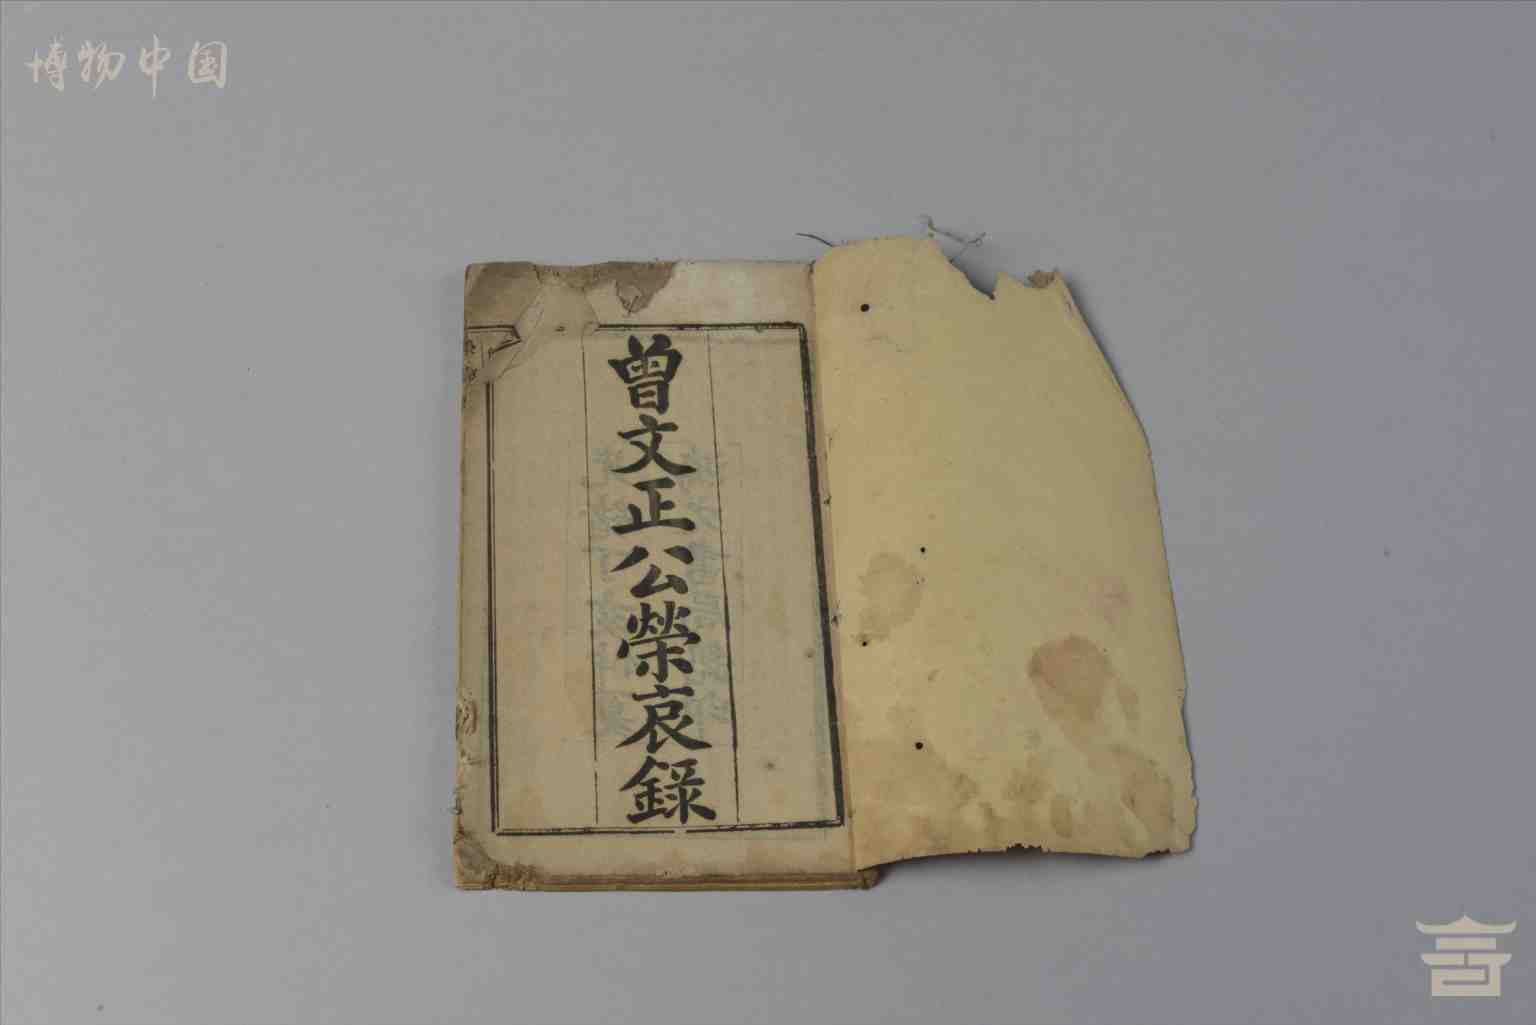 博物中国
曾文正公榮哀錄